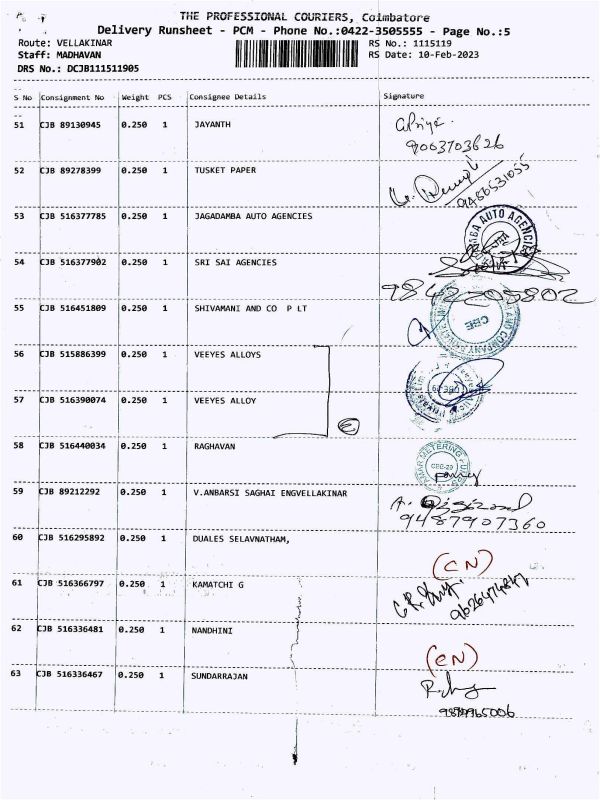 THE PROFESSIONAL COURIERS, Coimbatore
Delivery Runsheet - PCM - Phone No.:0422-3505555 - Page No.:5
Route: VELLAKINAR RS No.: 1115119
Staff: MADHAVAN RS Date: 10-Feb-2023
DRS No.: DCJB111511905
S No Consignment No Weight PCS Consignee Details Signature
51 CJB 89130945 0.250 1 JAYANTH
9003703626
52 CJB 89278399 0.250 1 TUSKET PAPER
9486531055
53 CJB 516377785 0.250 1 JAGADAMBA AUTO AGENCIES
AUTO AGENCIES
54 CJB 516377902 0.250 1 SRI SAI AGENCIES
9842205802
55 CJB 516451809 0.250 1 SHIVAMANI AND CO P LT
CBE
56 CJB 515886399 0.250 1 VEEYES ALLOYS
57 CJB 516390074 0.250 1 VEEYES ALLOY
58 CJB 516440034 0.250 1 RAGHAVAN
METERING
59 CJB 89212292 0.250 1 V.ANBARSI SAGHAI ENGVELLAKINAR
9487907360
60 CJB 516295892 0.250 1 DUALES SELAVNATHAM,
(CN)
61 CJB 516366797 0.250 1 KAMATCHI G
62 CJB 516336481 0.250 1 NANDHINI
(CN)
63 CJB 516336467 0.250 1 SUNDARRAJAN